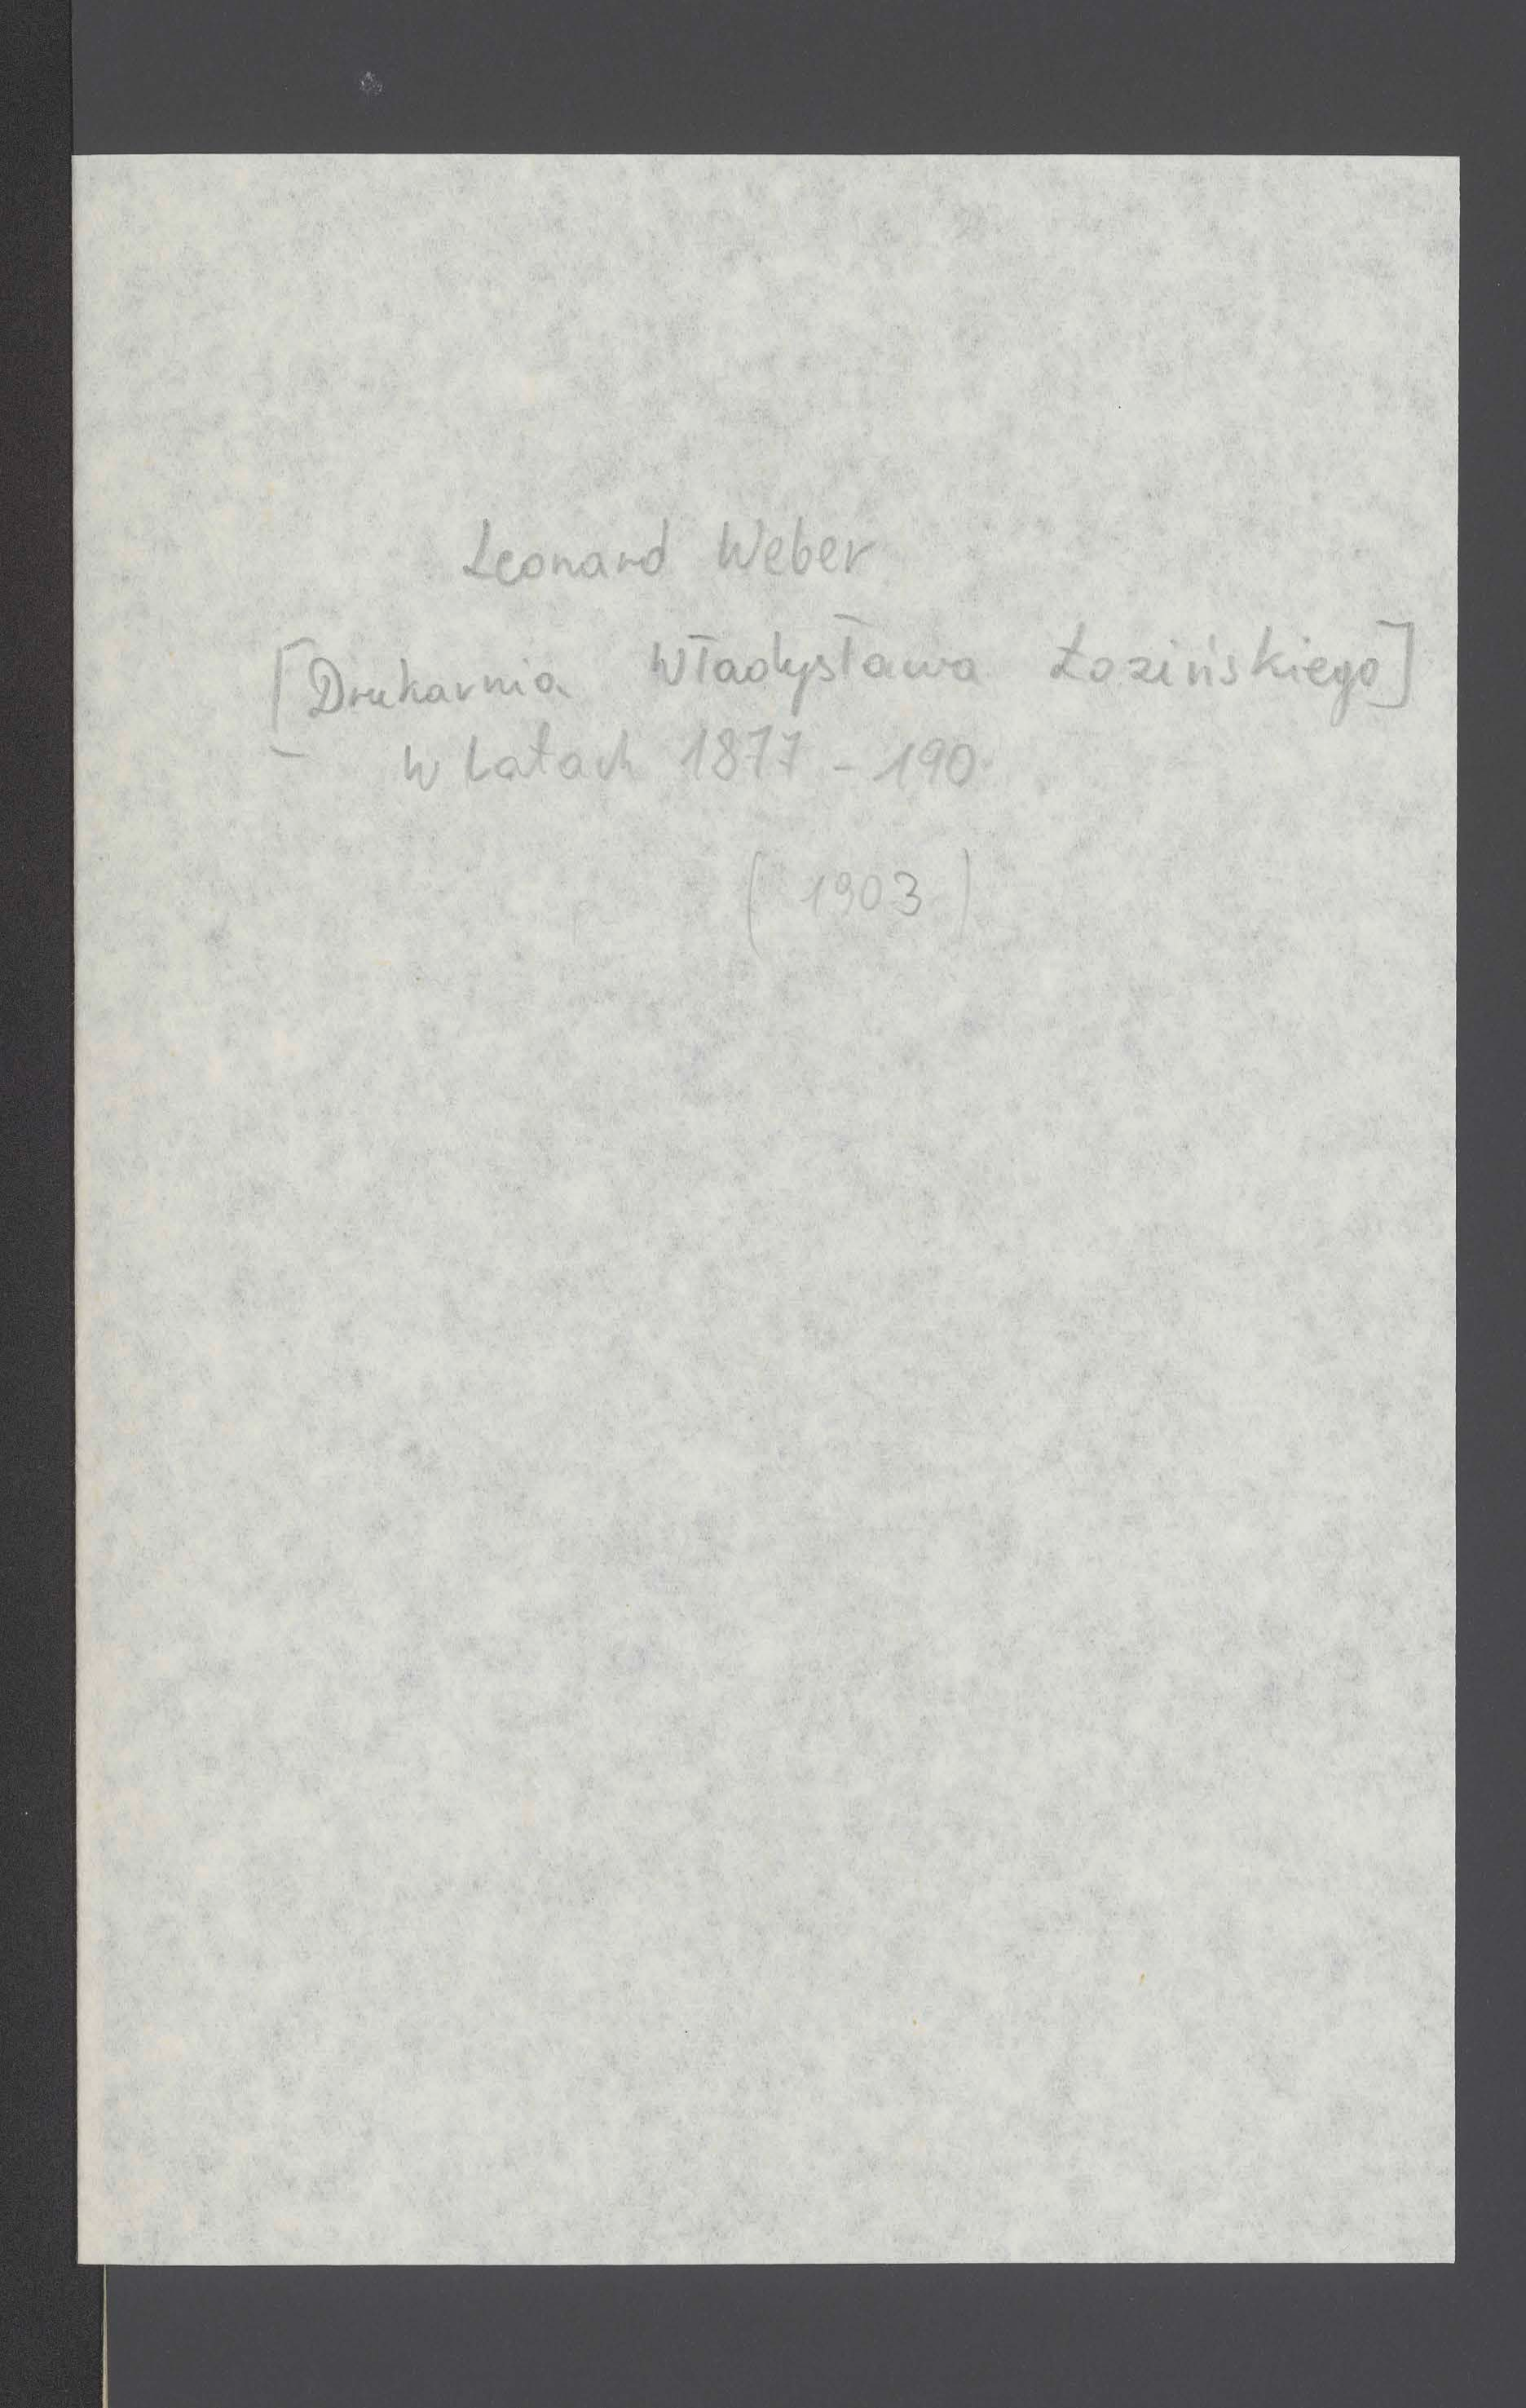 Leonard Weber
[Drukarnia Władysława Łozińskiego]
- w latach 1877 - 190.
( 1903 )